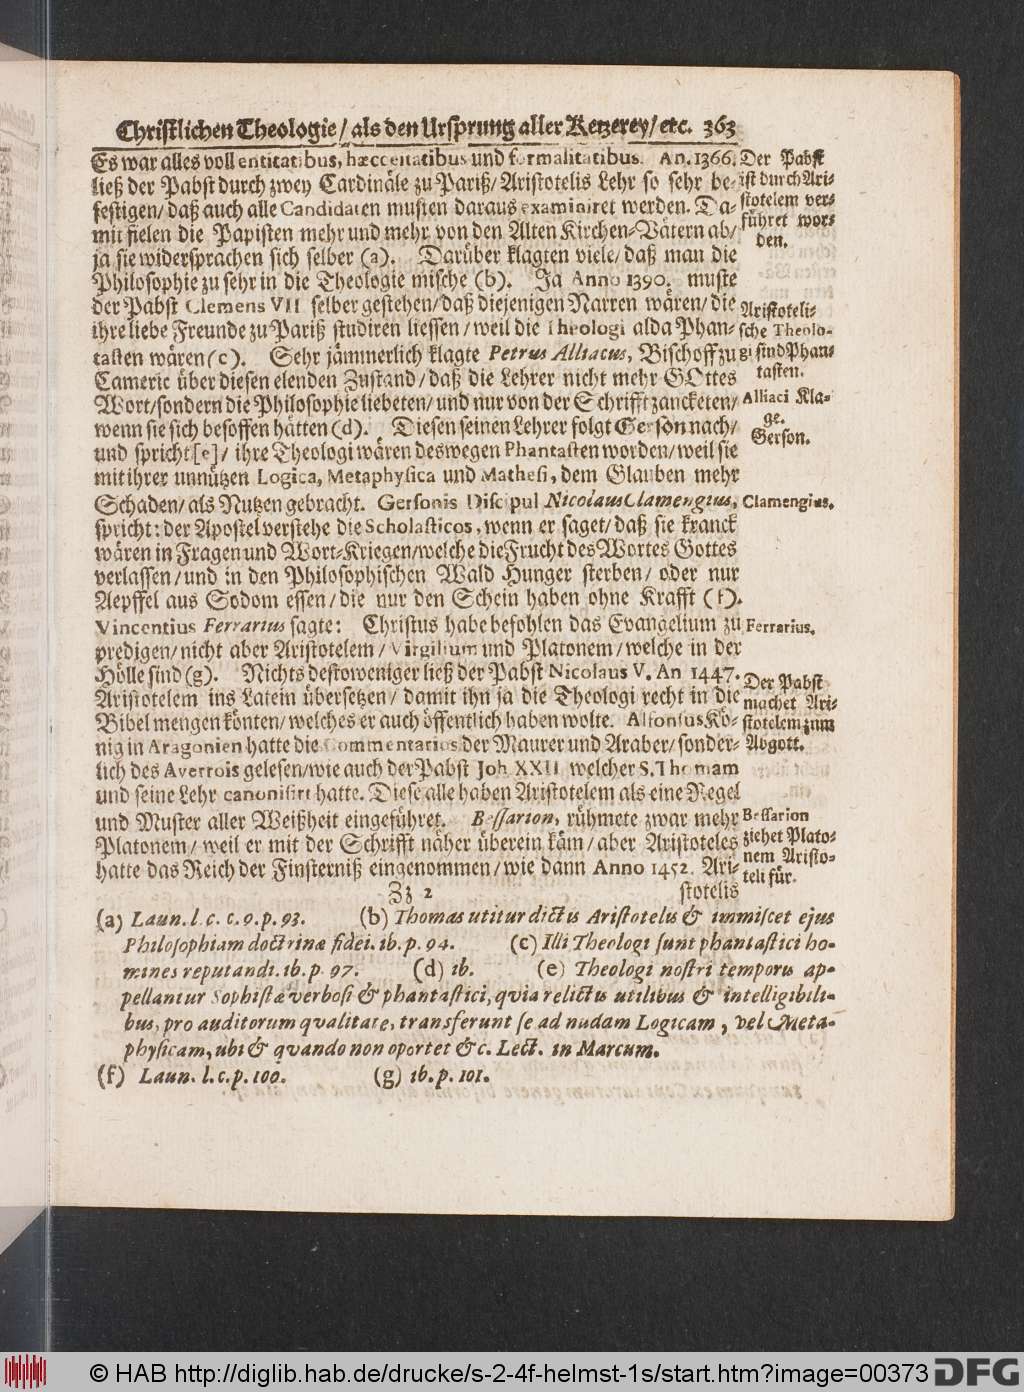 Christlichen Theologie/ als den Ursprung aller Ketzerey/ etc. 363
Es war alles voll entitatibus, hæcceitatibus und formalitatibus. An. 1366.
ließ der Pabst durch zwey Cardinäle zu Pariß/ Aristotelis Lehr so sehr be-
festigen/ daß auch alle Candidaten musten daraus examiniret werden. Da-
mit fielen die Papisten mehr und mehr von den Alten Kirchen-Vätern ab/
ja sie widersprachen sich selber (a). Darüber klagten viele/ daß man die
Philosophie zu sehr in die Theologie mische (b). Ja Anno 1390. muste
der Pabst Clemens VII selber gestehen/ daß diejenigen Narren wären/ die
ihre liebe Freunde zu Pariß studiren liessen/ weil die Theologi alda Phan-
tasten wären (c). Sehr jämmerlich klagte Petrus Alliacus, Bischoff zu
Cameric über diesen elenden Zustand/ daß die Lehrer nicht mehr GOttes
Wort/ sondern die Philosophie liebeten/ und nur von der Schrifft zancketen/
wenn sie sich besoffen hätten (d). Diesen seinen Lehrer folgt Gerson nach/
und spricht [e]/ ihre Theologi wären deswegen Phantasten worden/ weil sie
mit ihrer unnützen Logica, Metaphysica und Mathesi, dem Glauben mehr
Schaden/ als Nutzen gebracht. Gersonis Discipul Nicolaus Clamengius,
spricht: der Apostel verstehe die Scholasticos, wenn er saget/ daß sie kranck
wären in Fragen und Wort-Kriegen/ welche die Frucht des Wortes Gottes
verlassen/ und in den Philosophischen Wald Hunger sterben/ oder nur
Aepffel aus Sodom essen/ die nur den Schein haben ohne Krafft (f).
Vincentius Ferrarius sagte: Christus habe befohlen das Evangelium zu
predigen/ nicht aber Aristotelem/ Virgilium und Platonem/ welche in der
Hölle sind (g). Nichts destoweniger ließ der Pabst Nicolaus V. An 1447.
Aristotelem ins Latein übersetzen/ damit ihn ja die Theologi recht in die
Bibel mengen könten/ welches er auch öffentlich haben wolte. Alfonsus Kö-
nig in Aragonien hatte die Commentarios der Maurer und Araber/ sonder-
lich des Averrois gelesen/ wie auch der Pabst Joh XXII welcher S. Thomam
und seine Lehr canonisirt hatte. Diese alle haben Aristotelem als eine Regel
und Muster aller Weißheit eingeführet. Bessarion, rühmete zwar mehr
Platonem/ weil er mit der Schrifft näher überein käm/ aber Aristoteles
hatte das Reich der Finsterniß eingenommen/ wie dann Anno 1452. Ari-
Zz 2 stotelis
Der Pabst
ist durch Ari-
stotelem ver-
führet wor-
den.
Aristoteli-
sche Theolo-
gi sind Phan-
tasten.
Alliaci Kla-
ge.
Gerson.
Clamengius.
Ferrarius.
Der Pabst
machet Ari-
stotelem zum
Abgott.
Bessarion
ziehet Plato-
nem Aristo-
teli für.
(a) Laun. l. c. c. 9. p. 93. (b) Thomas utitur dictis Aristotelis & immiscet ejus
Philosophiam doctrinæ fidei. ib. p. 94. (c) Illi Theologi sunt phantastici ho-
mines reputandi. ib. p. 97. (d) ib. (e) Theologi nostri temporis ap-
pellantur Sophistæ verbosi & phantastici, qvia relictis utilibus & intelligibili-
bus, pro auditorum qvalitate, transferunt se ad nudam Logicam, vel Meta-
physicam, ubi & qvando non oportet &c. Lect. in Marcum.
(f) Laun. l. c. p. 100. (g) ib. p. 101.
© HAB http://diglib.hab.de/drucke/s-2-4f-helmst-1s/start.htm?image=00373 DFG